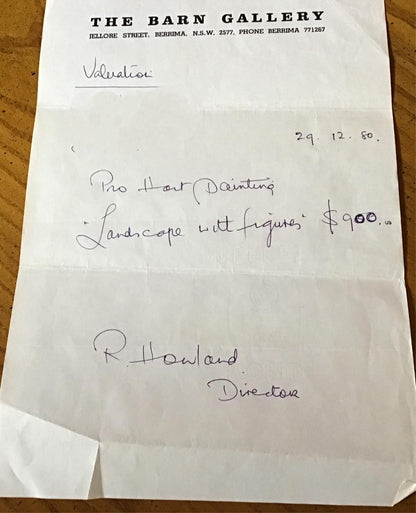 THE BARN GALLERY
JELLORE STREET, BERRIMA, N.S.W. 2577, PHONE BERRIMA 771267
Valuation
29. 12. 80.
Pro Hart Painting
"Landscape with figures" $900.00
R. Howland
Director